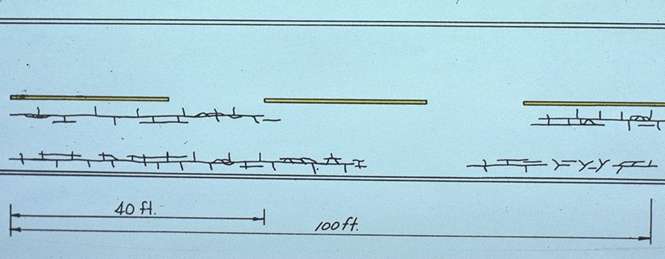 40 ft.
100 ft.